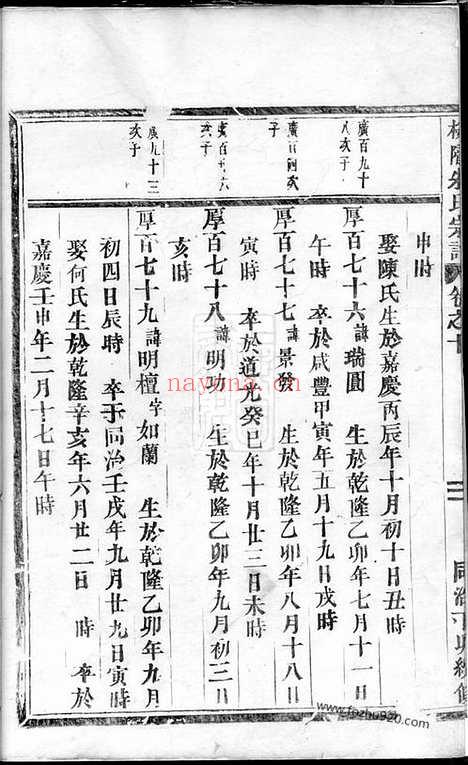 申時
娶陳氏生於嘉慶丙辰年十月初十日丑時
廣百九十
八次子
厚百七十六 諱瑞圓 生於乾隆乙卯年七月十一日
午時 卒於咸豐甲寅年五月十九日戌時
次
子
厚百七十七 諱景發 生於乾隆乙卯年八月十八日
寅時 卒於道光癸巳年十月廿三日未時
次子
厚百七十八 諱明功 生於乾隆乙卯年九月初三日
亥時
廣九十三
次子
厚百七十九 諱明檀 字如蘭 生於乾隆乙卯年九月
初四日辰時 卒于同治壬戌年九月廿九日寅時
娶何氏生於乾隆辛亥年六月廿二日 時 卒於
嘉慶壬申年二月十七日午時
nayona.cn
www.fozhu920.com